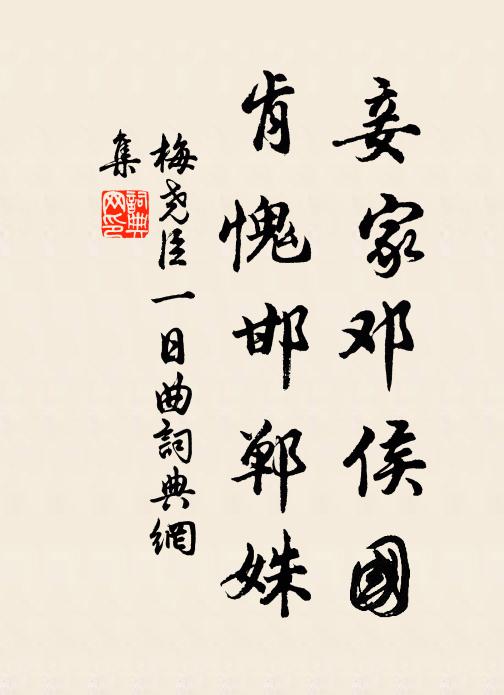 妾家邓侯國
肯愧邯郸姝
梅尧臣一日曲詞典網
集
詞典網印